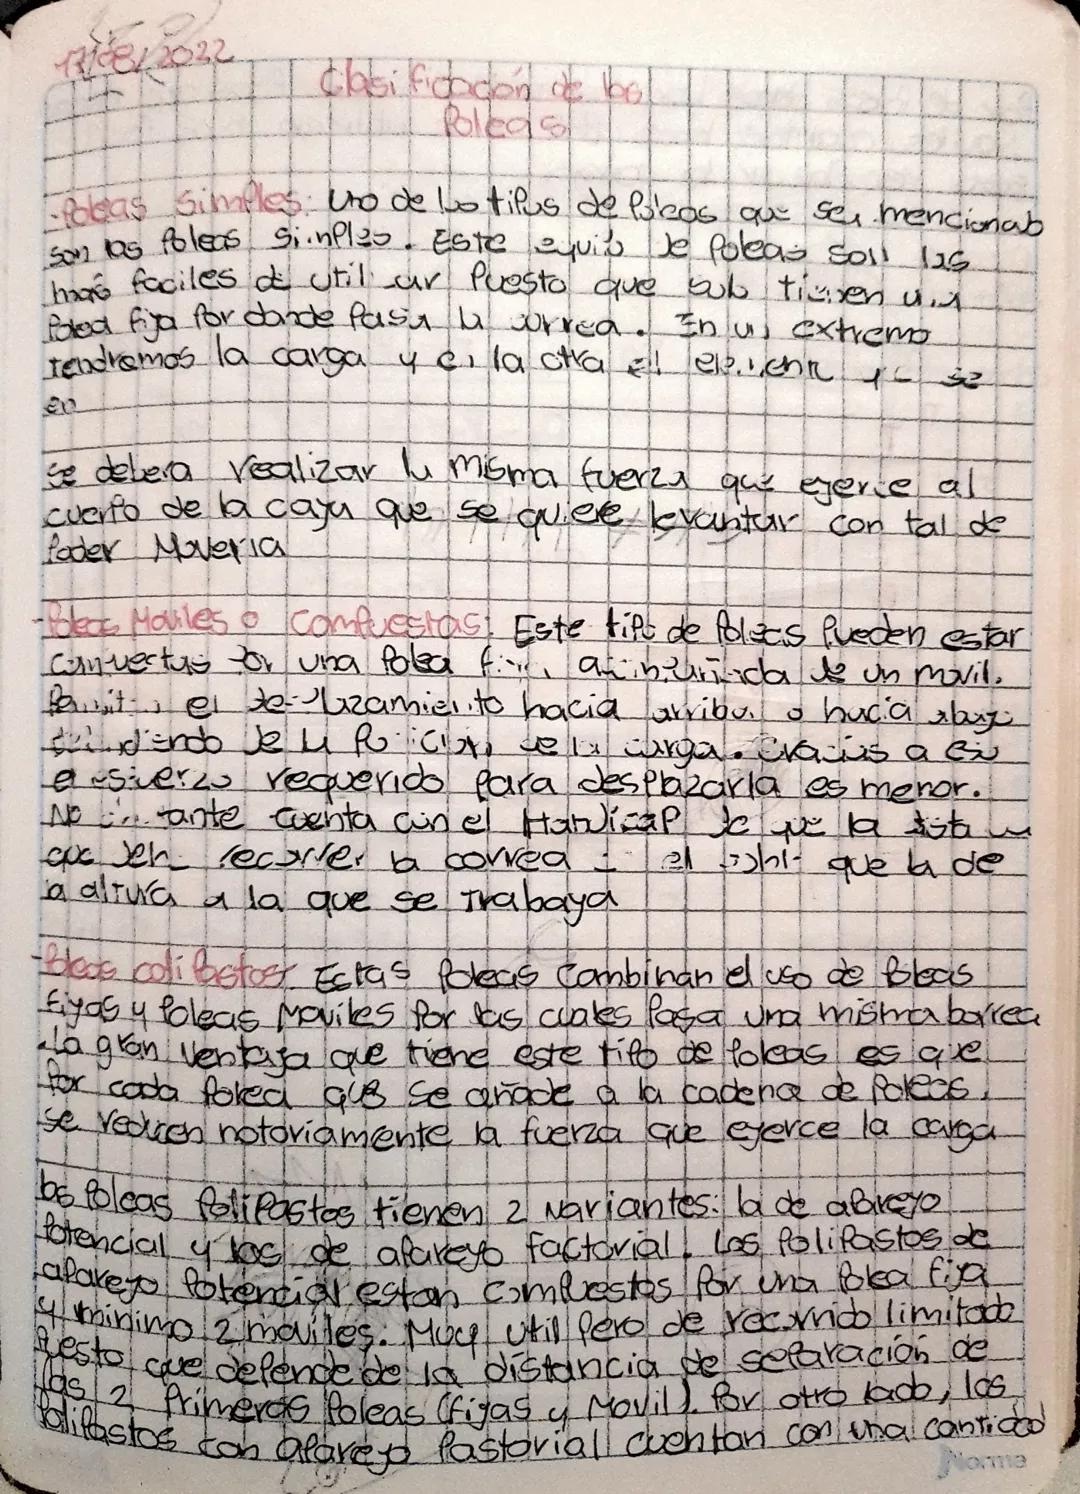 17/08/2022
Clasificación de las
Poleas
-Poleas simples: Uno de los tipos de Poleas que se mencionab
son las Poleas Simples. Este equipo de Poleas son las
más faciles de utilizar Puesto que solo tienen una
Polea fija Por donde Pasa la correa. En un extremo
tendremos la carga y en la otra el se
en
se debera realizar la misma fuerza que ejerce al
cuerpo de la caja que se quiere levantar con tal de
Poder Moverla
-Poleas Moviles o Compuestas: Este tipo de Poleas Pueden estar
por una Polea de un movil.
el desplazamiento hacia arriba o hacia abajo
de la Posición de la carga. Gracias a
esfuerzo requerido Para desplazarla es menor.
No tante cuenta con el Handicap de que la
que recorrer la correa el que la de
la altura a la que se Trabaja
-Poleas Estas Poleas Combinan el uso de Poleas
Fijas y Poleas Moviles Por las cuales Pasa una misma barrea
.La gran ventaja que tiene este tipo de Poleas es que
Por cada Polea que se añade a la cadena de Poleas,
se reducen notoriamente la fuerza que ejerce la carga
las Poleas Polipastos tienen 2 variantes: la de aparejo
Potencial y los de aparejo factorial. Los Polipastos de
aparejo Potencial estan compuestos Por una Polea fija
y minimo 2 moviles. Muy util Pero de recorrido limitado
Puesto que depende de la distancia de separación de
las 2 Primeras Poleas (fijas y Movil). Por otro lado, los
Polipastos con aparejo Pastorial cuentan con una cantidad
Norma